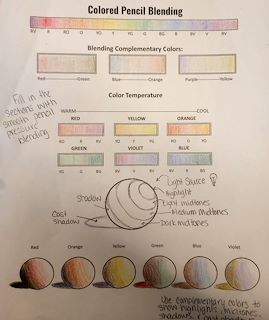 Colored Pencil Blending
RV R RO O YO Y YG G BG B BV V RV
Blending Complementary Colors:
Red Green Blue Orange Purple Yellow
Fill in the
sections with
smooth pencil
pressure
blending
Color Temperature
WARM COOL
RED YELLOW ORANGE
RO R RV YO Y YG RO O YO
GREEN VIOLET BLUE
YG G BG RV V BV BV B BG
Light Source
Highlight
Light midtones
Medium Midtones
Dark midtones
Shadow
Cast
Shadow
Red Orange Yellow Green Blue Violet
Use complementary colors to
show highlights, midtones,
shadows, & cast shadow